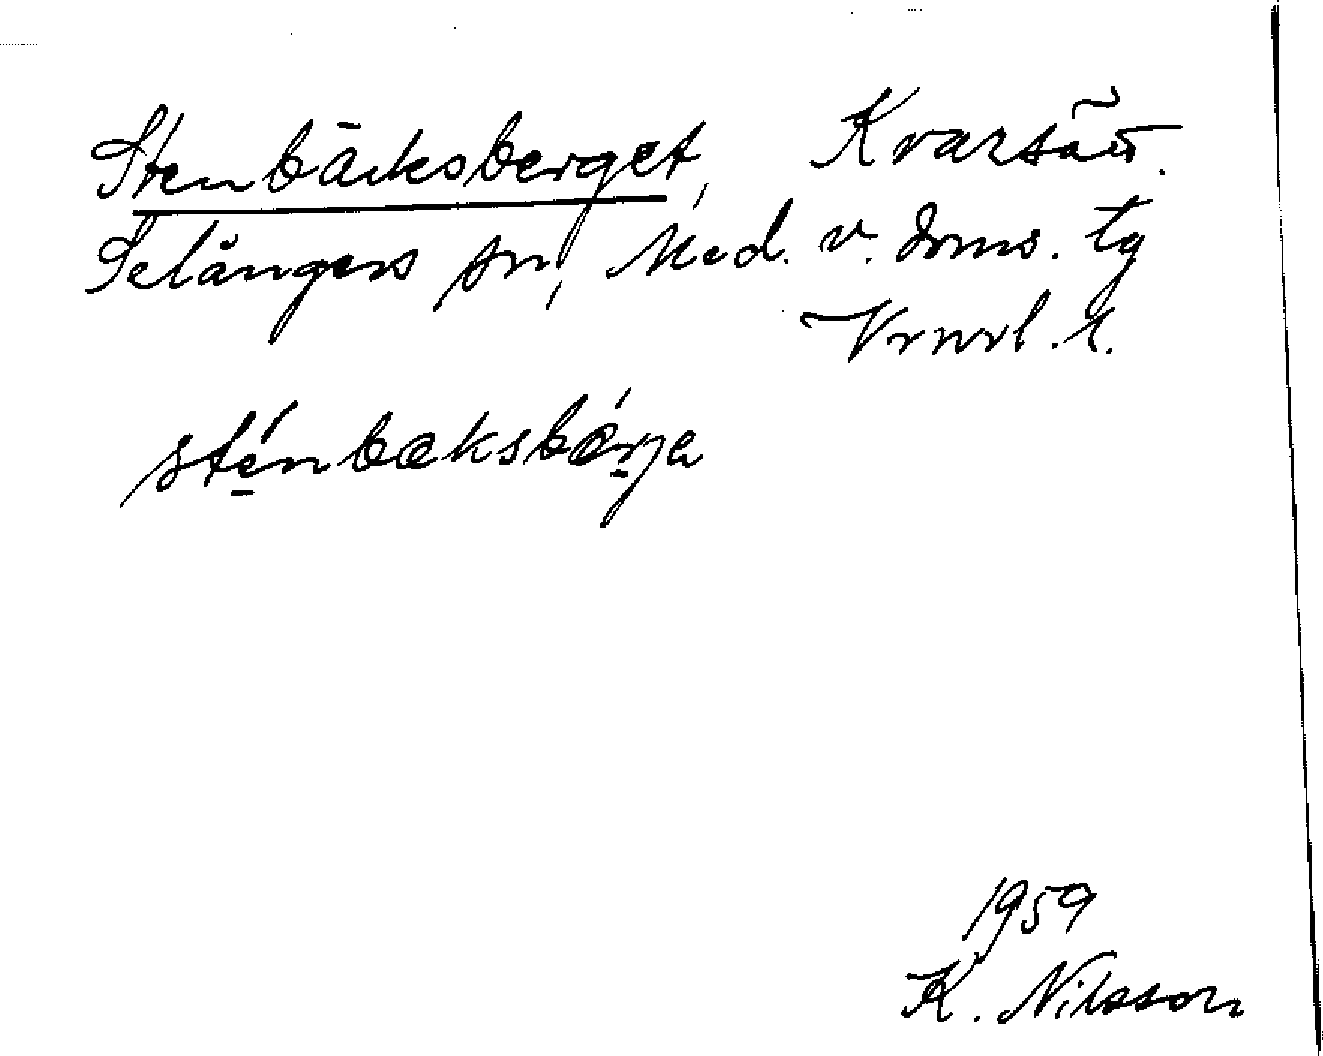 Stenbäcksberget, Kvarsätt.
Selångers sn, Med. v. doms. tg
Vrnrl. l.
sténbæksbærja
1959
K. Nilsson